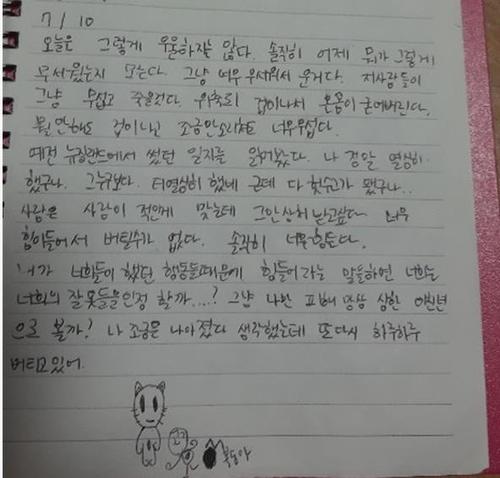 7/10
오늘은 그렇게 우울하지는 않다. 솔직히 어제 뭐가 그렇게
무서웠는지 모른다. 그냥 너무 무서워서 운거다. 저사람들이
그냥 무섭고 죽을것다. 위축되 겁이나서 온몸이 굳어버린다.
뭘 안해도 겁이나닌 조금만소리쳐도 너무무섭다.
예전 뉴질랜드에서 썼던 일지를 읽어봤다. 나 정말 열심히
했구나. 그누구보다. 더열심히 했네 근데 다 헛수고가 됐구나..
사람은 사람이 적은게 맞는데 그만 살고싶다 너무
힘이들어서 버틸수가 없다. 솔직히 너무힘든다.
내가 너희들이 했던 행동들때문에 힘들어 라는 말을하면 너희는
너희의 잘못들을인정 할까....? 그냥 나만 피해 망상 심한 미친년
으로 볼까? 나 조금은 나아졌다 생각했는데 또다시 하루하루
버티고있어.